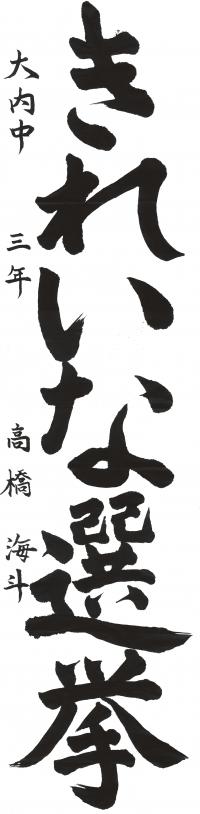 きれいな選挙
大内中 三年 高橋 海斗